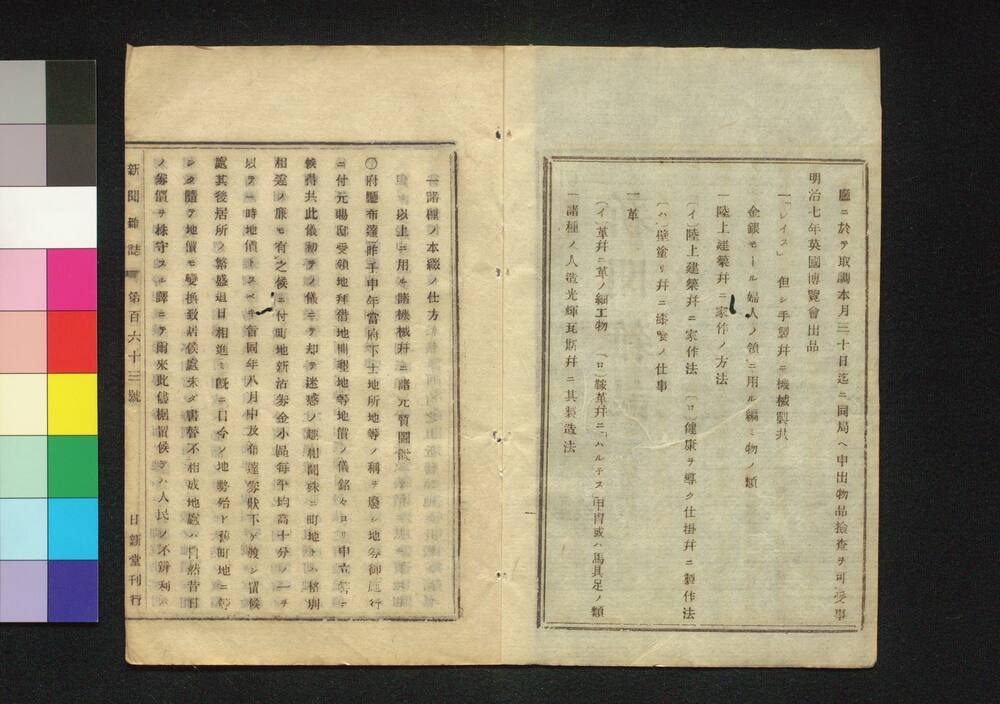 廳ニ於テ取調本月三十日迄ニ同局ヘ申出物品撿査ヲ可受事
明治七年英國博覽會出品
一「レイス」 但シ手製幷ニ機械製共
金銀モール婦人ノ領ニ用ル編ミ物ノ類
一陸上建築幷ニ家作ノ方法
(イ)陸上建築幷ニ家作法 (ロ)健康ヲ導ク仕掛幷ニ製作法
(ハ)壁塗リ幷ニ漆喰ノ仕事
一革
(イ)革幷ニ革ノ細工物 (ロ)鞍革幷ニ「ハルテス」甲冑或ハ馬具足ノ類
一諸種ノ人造光輝瓦斯幷ニ其製造法
一諸種ノ本綴ノ仕方
以上ニ用ル諸機械幷ニ諸元質圖式
○府廳布達昨壬申年當府下士地所地等ノ稱ヲ廢シ地券御施行
ニ付元賜邸受領地拜借地開墾地等地價ノ儀銘々ヨリ申立等ニ
候得共此儀初テノ儀ニテ却テ迷惑ノ趣相聞殊ニ町地トハ格別
相違ノ廉モ有之候ニ付町地新沽券金小區每平均高十分ノ一ヲ
以テ一時地價トスベキ旨同年八月中及布達券狀下ゲ渡シ置候
處其後居所ノ繁盛追日相進ミ既ニ目今ノ地勢殆ト舊町地ニ等
シク隨テ地價モ變換致居候處未ダ書替不相成地處ハ自然昔日
ノ券價ヲ株守スル譯ニテ爾來此儘据置候テハ人民ノ不辨利
新聞雜誌 第百六十三號 日新堂刊行